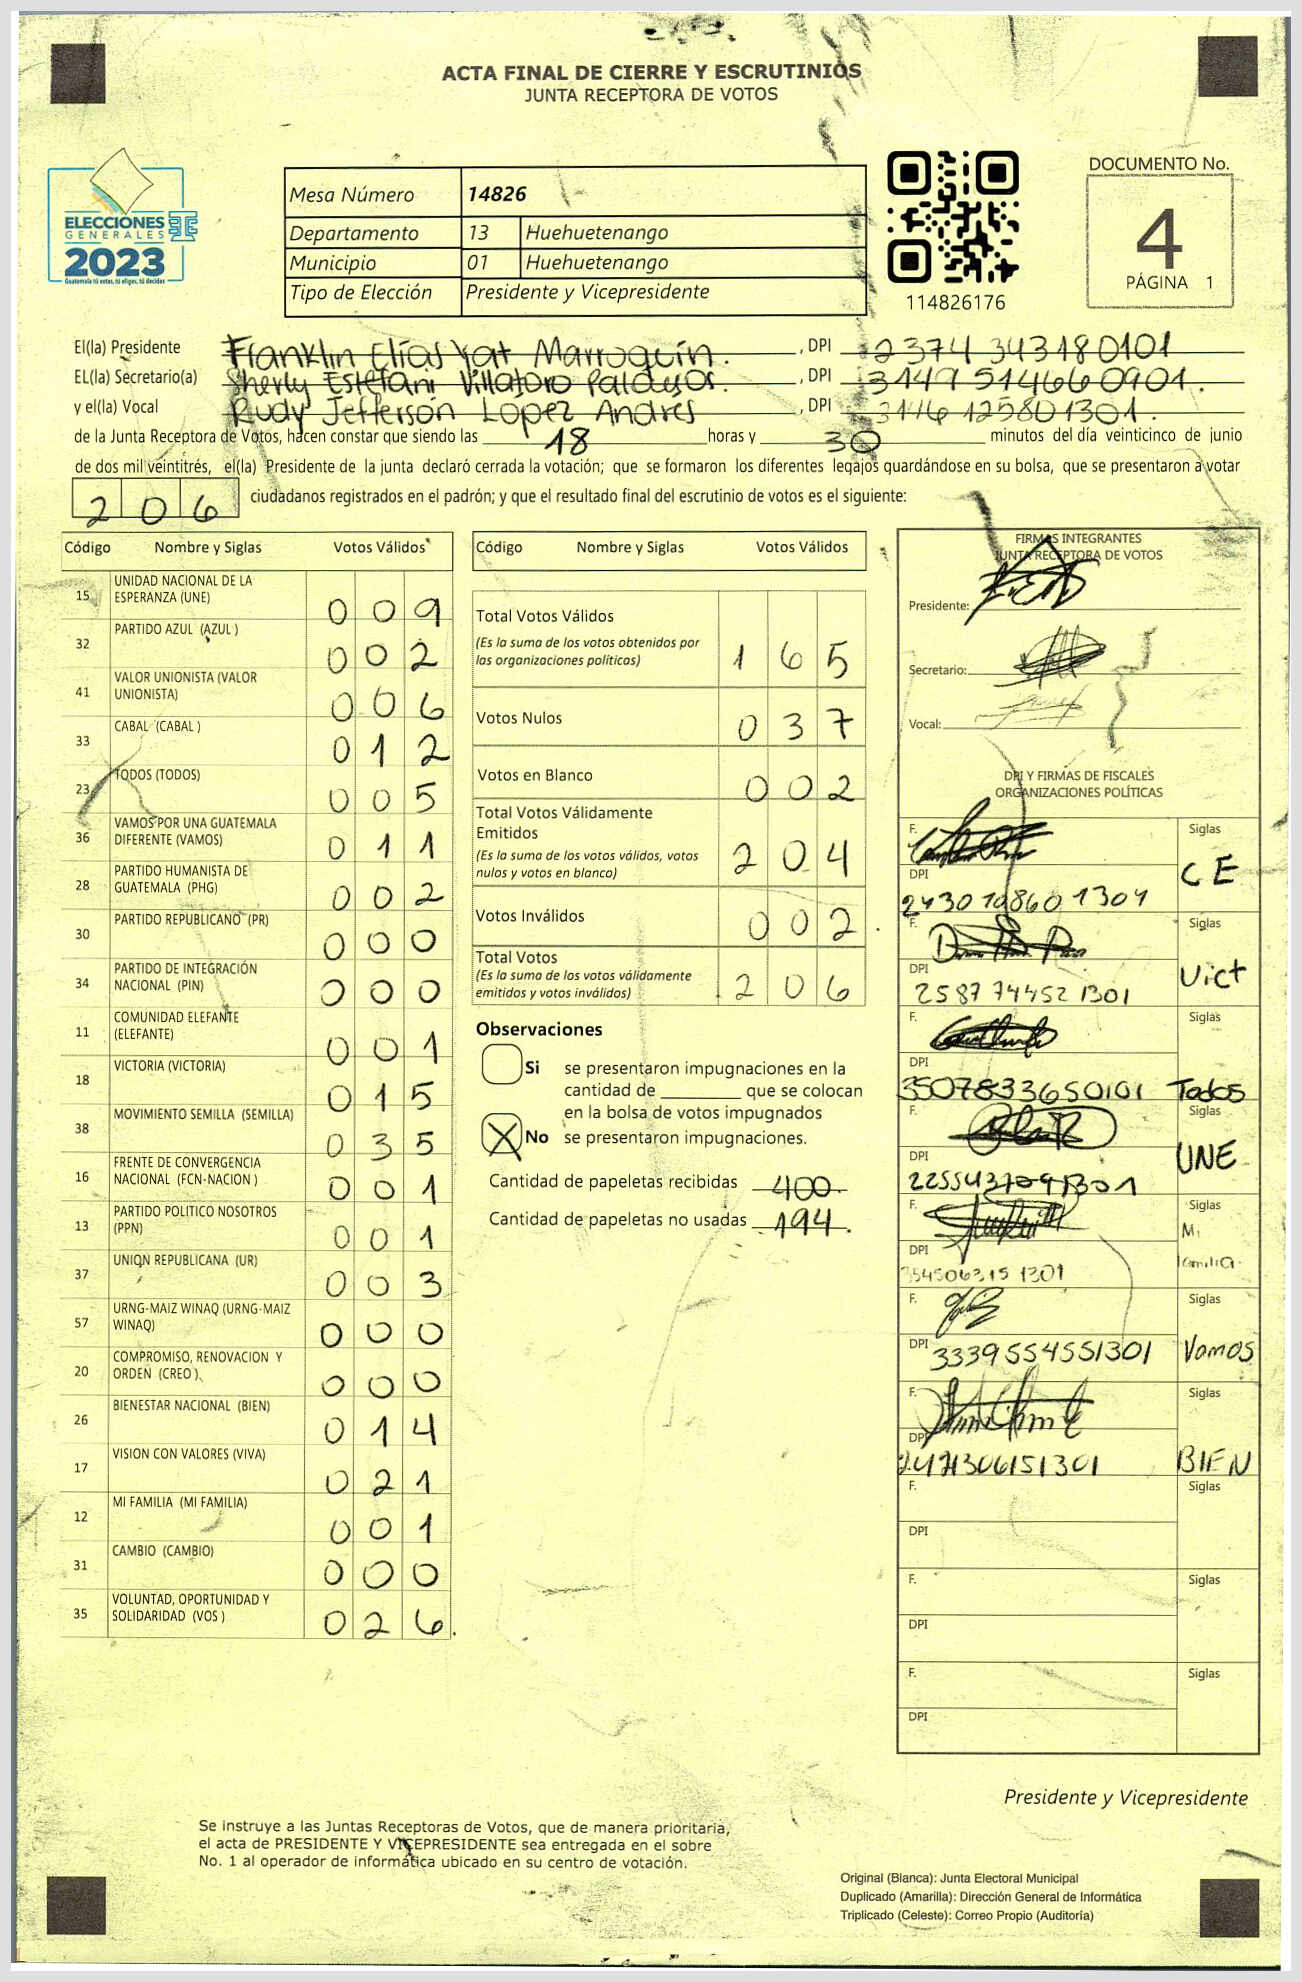 ACTA FINAL DE CIERRE Y ESCRUTINIOS
JUNTA RECEPTORA DE VOTOS
ELECCIONES
GENERALES
2023
Guatemala tú votas, tú eliges, tú decides
Mesa Número 14826
Departamento 13 Huehuetenango
Municipio 01 Huehuetenango
Tipo de Elección Presidente y Vicepresidente
114826176
DOCUMENTO No.
4
PÁGINA 1
El(la) Presidente Franklin Elías Yat Marroquín. , DPI 2374 343180101
EL(la) Secretario(a) Sherly Estefani Villatoro Palacios. , DPI 3149514660901.
y el(la) Vocal Rudy Jefferson Lopez Andres , DPI 3146125801301.
de la Junta Receptora de Votos, hacen constar que siendo las 18 horas y 30 minutos del día veinticinco de junio
de dos mil veintitrés, el(la) Presidente de la junta declaró cerrada la votación; que se formaron los diferentes legajos guardándose en su bolsa, que se presentaron a votar
206 ciudadanos registrados en el padrón; y que el resultado final del escrutinio de votos es el siguiente:
Código Nombre y Siglas Votos Válidos
15 UNIDAD NACIONAL DE LA
ESPERANZA (UNE) 0 0 9
32 PARTIDO AZUL (AZUL ) 0 0 2
41 VALOR UNIONISTA (VALOR
UNIONISTA) 0 0 6
33 CABAL (CABAL ) 0 1 2
23 TODOS (TODOS) 0 0 5
36 VAMOS POR UNA GUATEMALA
DIFERENTE (VAMOS) 0 1 1
28 PARTIDO HUMANISTA DE
GUATEMALA (PHG) 0 0 2
30 PARTIDO REPUBLICANO (PR) 0 0 0
34 PARTIDO DE INTEGRACIÓN
NACIONAL (PIN) 0 0 0
11 COMUNIDAD ELEFANTE
(ELEFANTE) 0 0 1
18 VICTORIA (VICTORIA) 0 1 5
38 MOVIMIENTO SEMILLA (SEMILLA) 0 3 5
16 FRENTE DE CONVERGENCIA
NACIONAL (FCN-NACION ) 0 0 1
13 PARTIDO POLITICO NOSOTROS
(PPN) 0 0 1
37 UNION REPUBLICANA (UR) 0 0 3
57 URNG-MAIZ WINAQ (URNG-MAIZ
WINAQ) 0 0 0
20 COMPROMISO, RENOVACION Y
ORDEN (CREO ) 0 0 0
26 BIENESTAR NACIONAL (BIEN) 0 1 4
17 VISION CON VALORES (VIVA) 0 2 1
12 MI FAMILIA (MI FAMILIA) 0 0 1
31 CAMBIO (CAMBIO) 0 0 0
35 VOLUNTAD, OPORTUNIDAD Y
SOLIDARIDAD (VOS ) 0 2 6.
Código Nombre y Siglas Votos Válidos
Total Votos Válidos
(Es la suma de los votos obtenidos por
las organizaciones políticas) 1 6 5
Votos Nulos 0 3 7
Votos en Blanco 0 0 2
Total Votos Válidamente
Emitidos
(Es la suma de los votos válidos, votos
nulos y votos en blanco) 2 0 4
Votos Inválidos 0 0 2
Total Votos
(Es la suma de los votos válidamente
emitidos y votos inválidos) 2 0 6
Observaciones
Si se presentaron impugnaciones en la
cantidad de ________ que se colocan
en la bolsa de votos impugnados
X No se presentaron impugnaciones.
Cantidad de papeletas recibidas 400
Cantidad de papeletas no usadas 194.
FIRMAS INTEGRANTES
JUNTA RECEPTORA DE VOTOS
Presidente:
Secretario:
Vocal:
DPI Y FIRMAS DE FISCALES
ORGANIZACIONES POLÍTICAS
F. Siglas
DPI CE
F. Siglas
DPI Vict
2587 74452 1301
F. Siglas
DPI
3507833650101 Todos
F. Siglas
DPI UNE
F. Siglas
Mi
DPI familia
F. Siglas
DPI 3339554551301 Vamos
F. Siglas
DPI
2471306151301 BIEN
F. Siglas
DPI
F. Siglas
DPI
F. Siglas
DPI
Presidente y Vicepresidente
Se instruye a las Juntas Receptoras de Votos, que de manera prioritaria,
el acta de PRESIDENTE Y VICEPRESIDENTE sea entregada en el sobre
No. 1 al operador de informática ubicado en su centro de votación.
Original (Blanca): Junta Electoral Municipal
Duplicado (Amarilla): Dirección General de Informática
Triplicado (Celeste): Correo Propio (Auditoría)